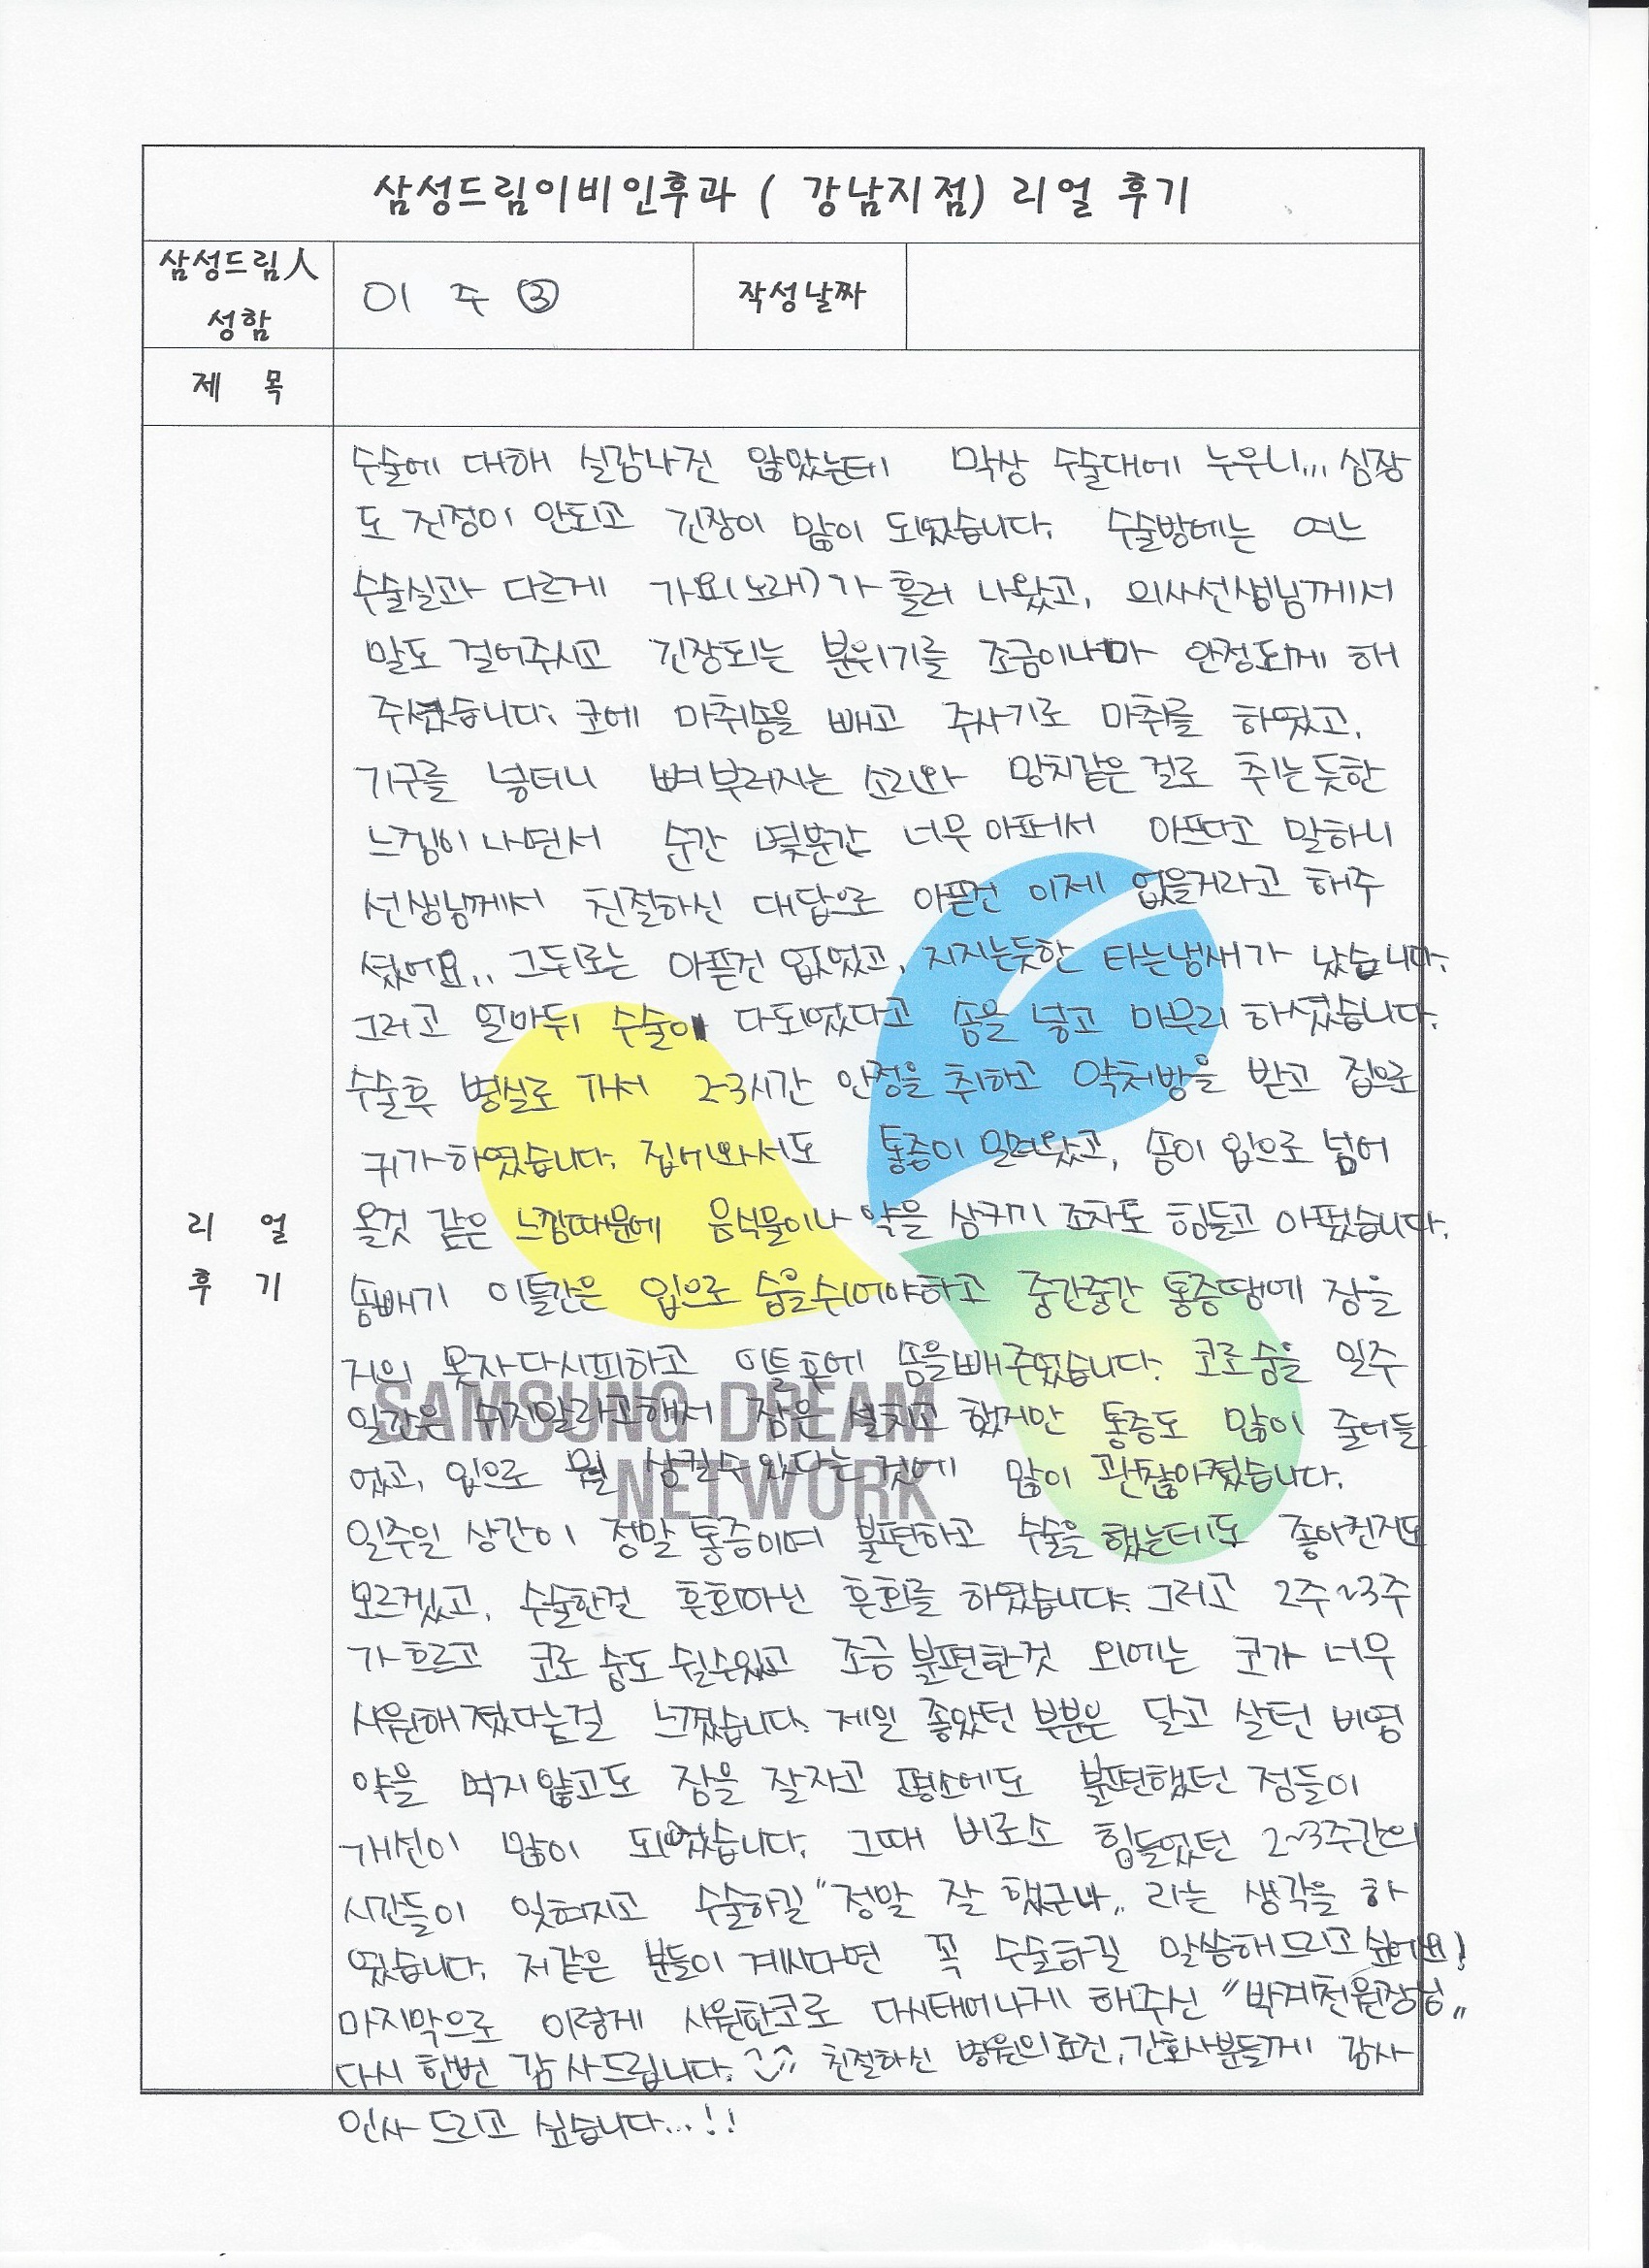 삼성드림이비인후과 ( 강남지점) 리얼 후기
삼성드림人
성함
이 주 ③
작성날짜
제 목
수술에 대해 실감나진 않았는데 막상 수술대에 누우니... 심장
도 진정이 안되고 긴장이 많이 되었습니다. 수술방에는 여느
수술실과 다르게 가요(노래)가 흘러 나왔고, 의사선생님께서
말도 걸어주시고 긴장되는 분위기를 조금이나마 안정되게 해
주셨습니다. 코에 마취솜을 빼고 주사기로 마취를 하였고,
기구를 넣더니 뼈부러지는 소리와 망치같은 걸로 치는듯한
느낌이 나면서 순간 몇분간 너무 아퍼서 아프다고 말하니
선생님께서 친절하신 대답으로 아픈건 이제 없을거라고 해주
셨어요.. 그뒤로는 아픈건 없었고, 지지는듯한 타는냄새가 났습니다.
그리고 얼마뒤 수술이 다되었다고 솜을 넣고 마무리 하셨습니다.
수술후 병실로 가서 2-3시간 안정을 취하고 약처방을 받고 집으로
귀가하였습니다. 집에와서도 통증이 밀려왔고, 솜이 입으로 넘어
올것 같은 느낌때문에 음식물이나 약을 삼키기 조차도 힘들고 아펐습니다.
리 얼
후 기
솜빼기 이틀간은 입으로 숨을쉬어야하고 중간중간 통증땜에 잠을
거의 못자다시피하고 이틀후에 솜을빼주었습니다. 코로숨을 일주
일간은 쉬지말라고해서 잠은 설치고 했지만 통증도 많이 줄어들
었고, 입으로 뭘 삼킬수있다는것에 많이 괜찮아졌습니다.
일주일 상간이 정말 통증이며 불편하고 수술을 했는데도 좋아진지도
모르겠고, 수술한걸 후회아닌 후회를 하였습니다. 그리고 2주~3주
가 흐르고 코로 숨도 쉴수있고 조금 불편한것 외에는 코가 너무
시원해 졌다는걸 느꼈습니다. 제일 좋았던 부분은 달고 살던 비염
약을 먹지않고도 잠을 잘자고 평소에도 불편했던 점들이
개선이 많이 되었습니다. 그때 비로소 힘들었던 2~3주간의
시간들이 잊혀지고 수술하길 "정말 잘 했구나„ 라는 생각을 하
였습니다. 저같은 분들이 계시다면 꼭 수술하길 말씀해드리고싶어요!
마지막으로 이렇게 시원한코로 다시태어나게 해주신 "박계천원장님„
다시 한번 감사드립니다. ^^ 친절하신 병원의료진, 간호사분들께 감사
인사 드리고 싶습니다...!!
SAMSUNG DREAM
NETWORK